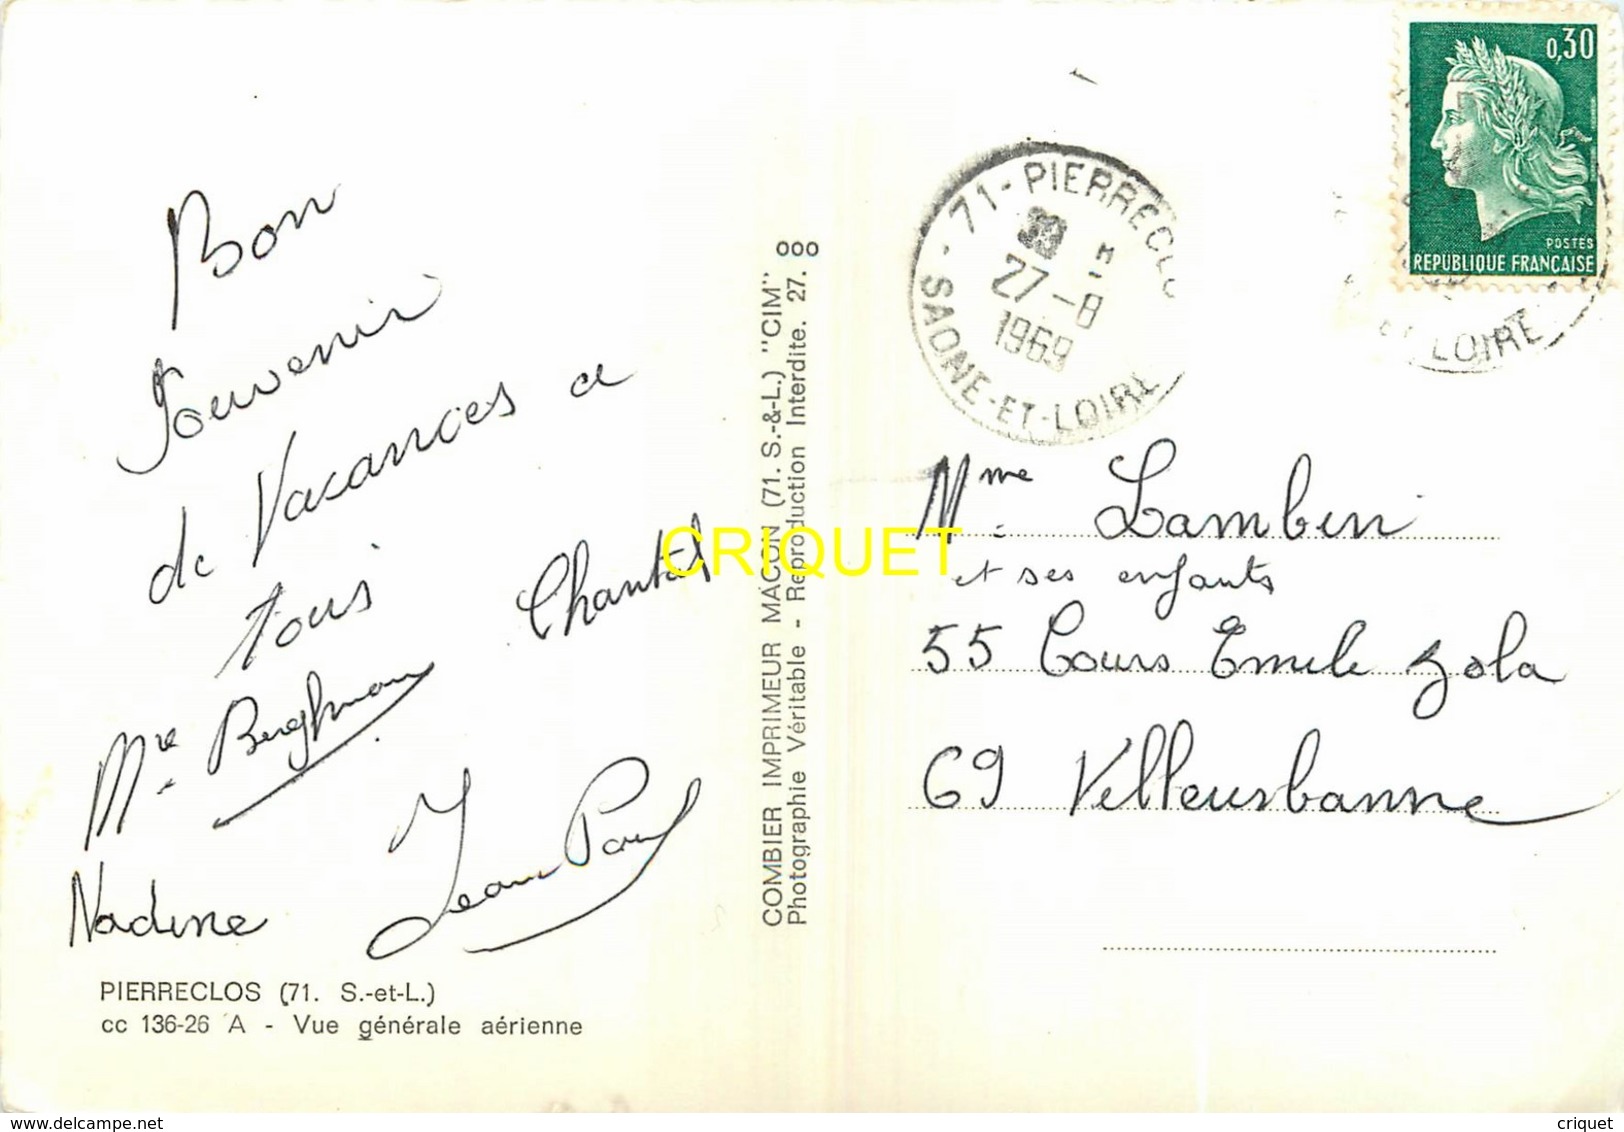 Bon
Souvenir
de Vacances a
tous
Chantal
Mme Berghman
Jean Paul
Nadine
PIERRECLOS (71. S.-et-L.)
cc 136-26 A - Vue générale aérienne
COMBIER IMPRIMEUR MACON (71. S.-&-L.) "CIM"
Photographie Véritable - Reproduction Interdite. 27. ooo
CRIQUET
71 - PIERRECLO
27 - 8
1969
SAONE-ET-LOIRE
0,30
POSTES
REPUBLIQUE FRANÇAISE
ET LOIRE
Mme Lambin
et ses enfants
55 Cours Emile Zola
69 Villeurbanne
www.delcampe.net
criquet